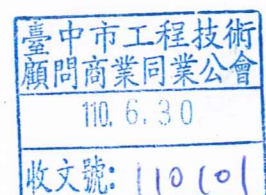 臺中市工程技術
顧問商業同業公會
110. 6. 30
收文號: 110101